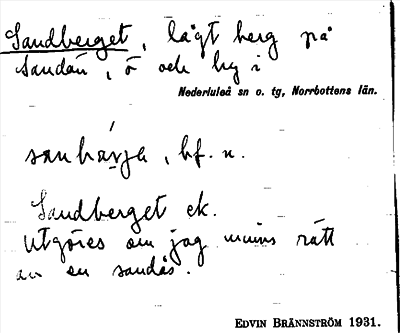 Sandberget, lågt berg på
Sandön, ö och by i
Nederluleå sn o. tg, Norrbottens län.
sanbärja, bf. n.
Sandberget ek.
Utgöres om jag minns rätt
av en sandås.
EDVIN BRÄNNSTRÖM 1931.